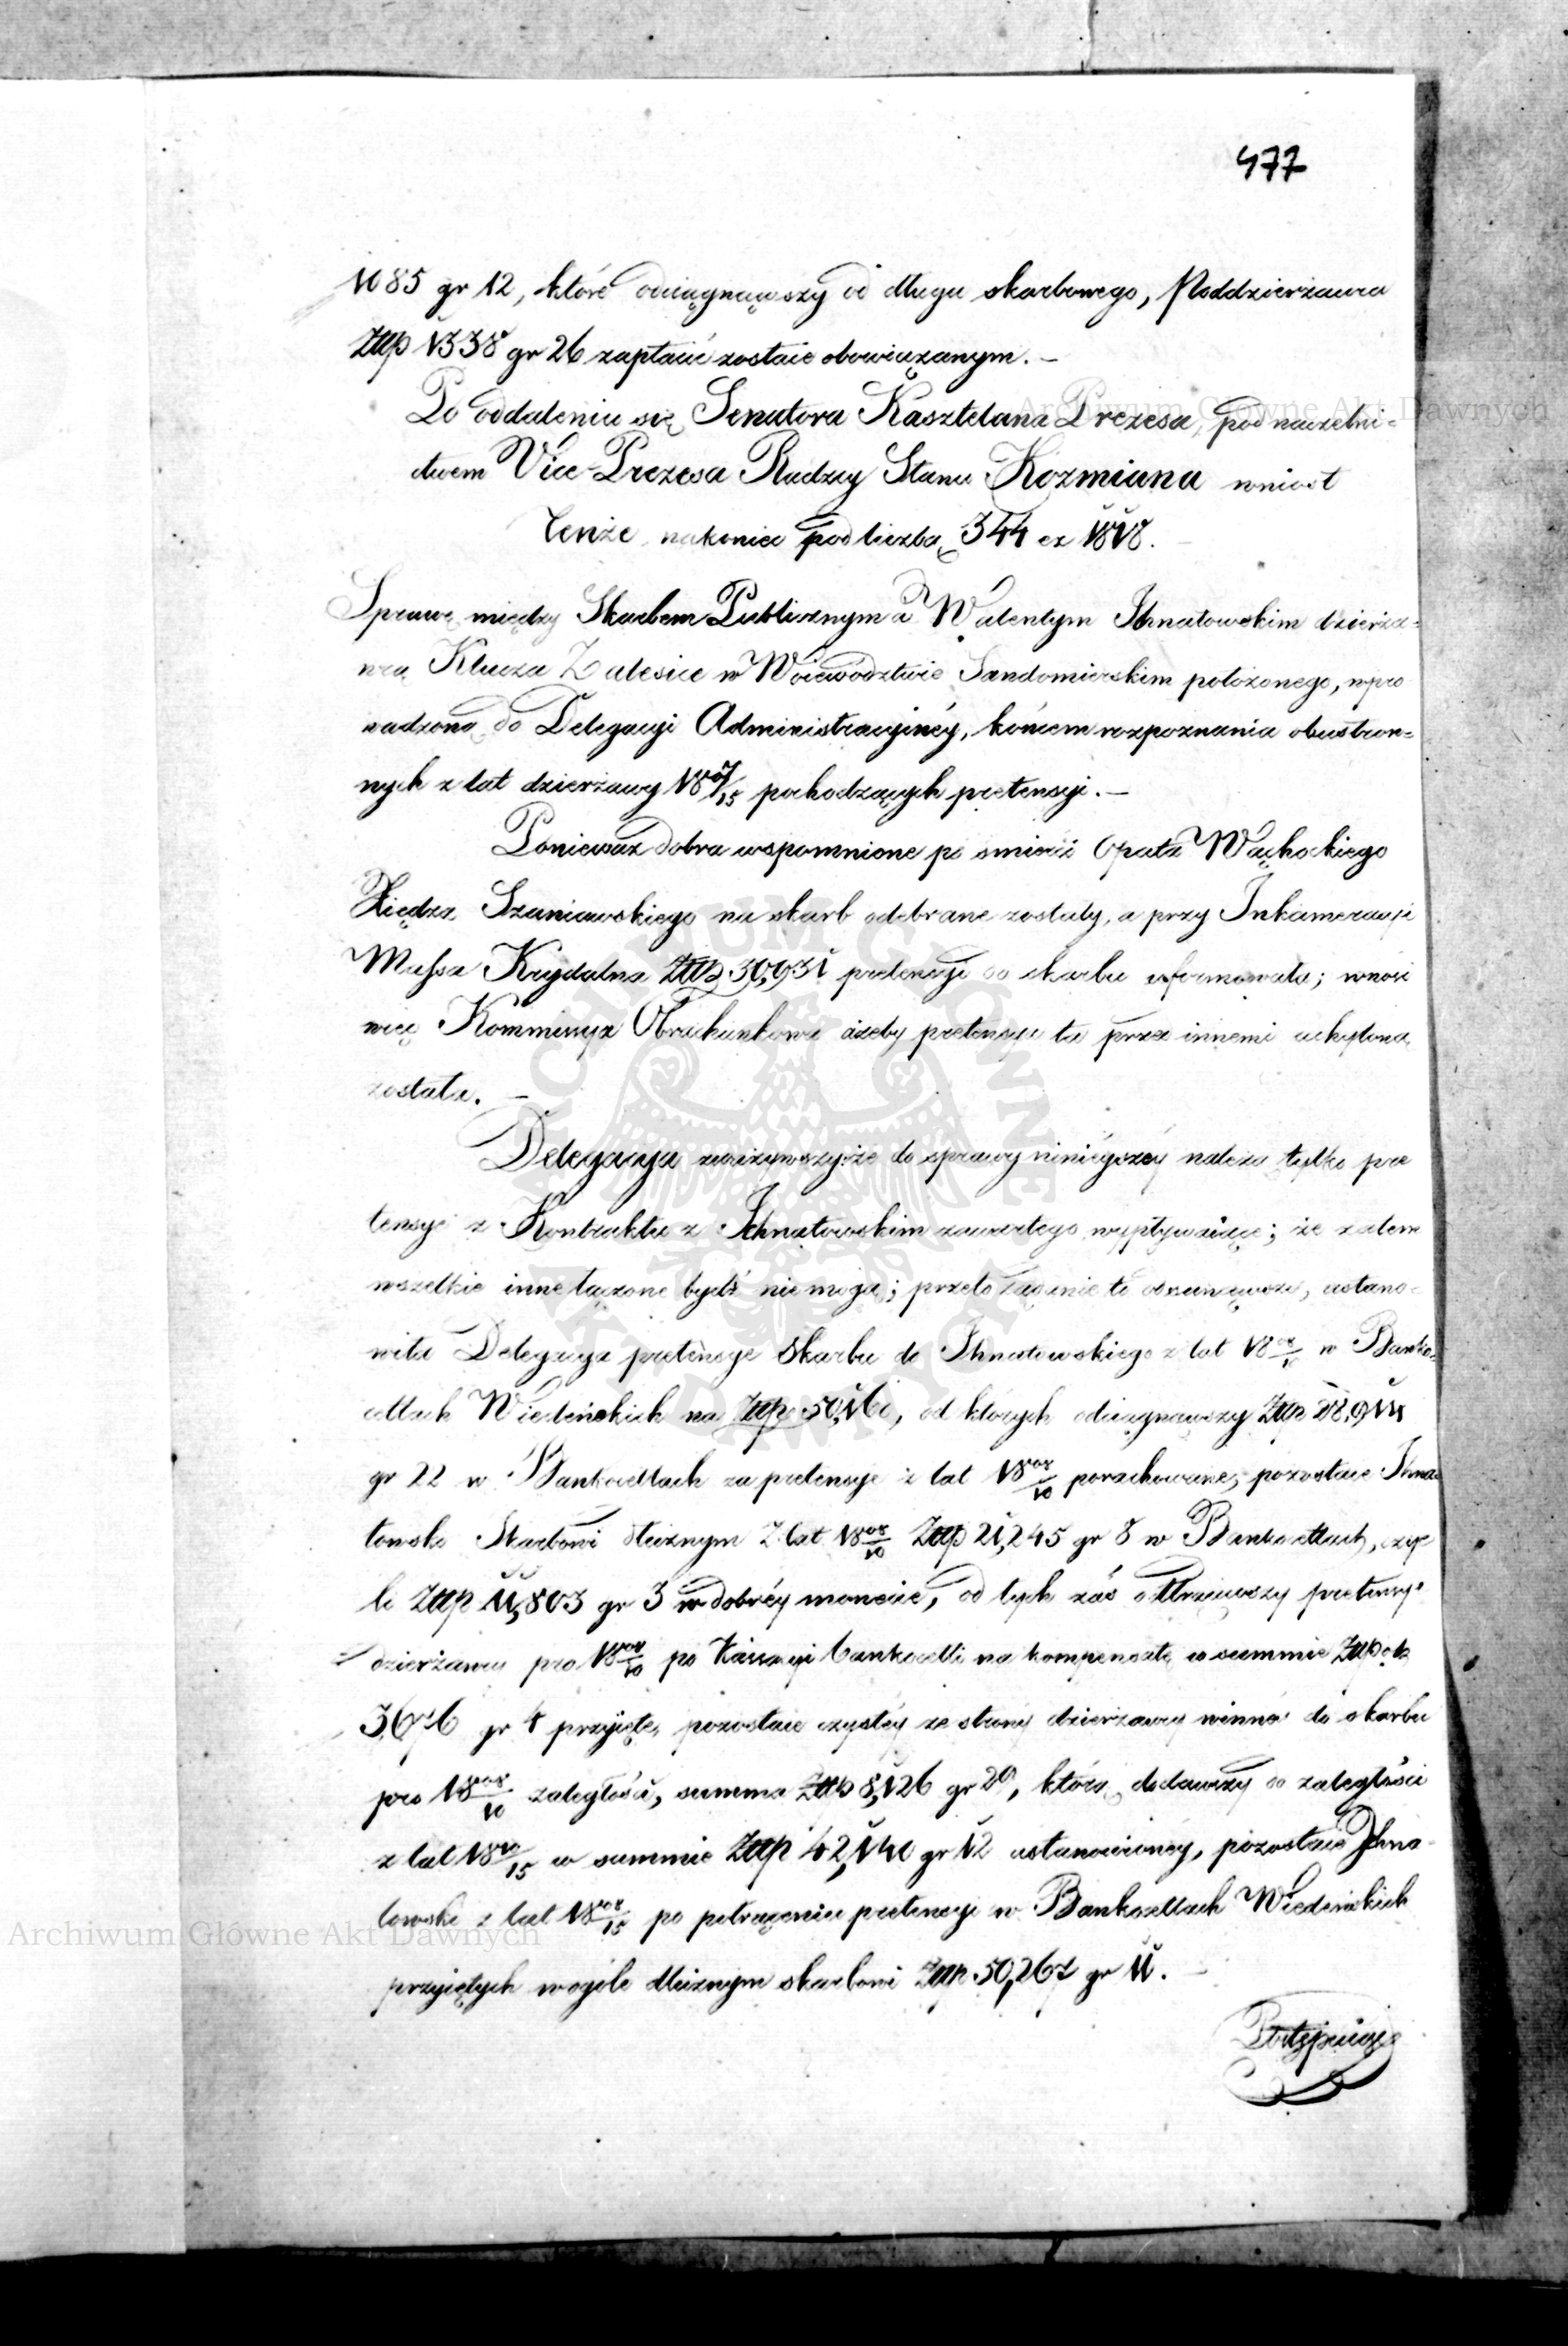 477
1085 gr 12, które odciągnąwszy od długu skarbowego, Poddzierżawca
Złłp 1338 gr 26 zapłacić zostaie obowiązanym. –
Po oddaleniu się Senatora Kasztelana Prezesa, pod naczelni=
ctwem Vice-Prezesa Radzcy Stanu Kozmiana wniosł
tenże nakoniec pod liczbą 344 ex 1818.
Sprawę między Skarbem Publicznym a Walentym Ihnatowskim dzierża=
wcą Klucza Zalesice w Woiewództwie Sandomierskim położonego, wpro
wadzoną do Delegacyi Administracyinéy, końcem rozpoznania obustron=
nych z lat dzierżawy 18 09/15 pochodzących pretensyi. –
Ponieważ dobra wspomnione po śmierci Opata Wąchockiego
Xiędza Szaniawskiego na skarb odebrane zostały, a przy Inkameracyi
Massa Krydalna Złłp 30,931 pretensyi do skarbu uformowała; wnosi
więc Kommissya Obrachunkowa ażeby pretensya ta przed innemi uchyloną
została. –
Delegacya zważywszy: że do sprawy ninieyszéy należą tylko pre
tensye z Kontraktu z Ichnatowskim zawartego wypływaiące; że zatem
wszelkie inne łączone bydź nie mogą; przeto żądanie to usunąwszy, ustano=
wiła Delegacya pretensye Skarbu do Ihnatowskiego z lat 18 08/10 w Banko=
cetlach Wiedeńskich na Złłp 50,160, od których odciągnąwszy Złłp 28,914
gr 22 w Bankocetlach za pretensye z lat 18 08/10 porachowane, pozostaie Ihna=
towski Skarbowi dłużnym z lat 18 08/10 Złłp 21,245 gr 8 w Bankocetlach, czy
li Złłp 11,803 gr 3 w dobréy monecie, od tych zaś odtrąciwszy pretensye
dzierżawcy pro 18 08/10 po Kassacyi bankocetli na kompensatę w summie Złłp
3,676 gr 4 przyięte, pozostaie czystéy ze strony dzierżawcy winnéy do skarbu
pro 18 08/10 zaległości, summa Złłp 8,126 gr 29, którą dodawszy do zaległości
z lat 18 10/15 w summie Złłp 42,140 gr 12 ustanowionéy, pozostaie Ihna=
towski z lat 18 08/15 po potrąceniu pretensyi w Bankocetlach Wiedeńskich
przyiętych wogóle dłużnym skarbowi Złłp 50,267 gr 11.
Archiwum Główne Akt Dawnych
Archiwum Główne Akt Dawnych
ARCHIWUM GŁÓWNE AKT DAWNYCH